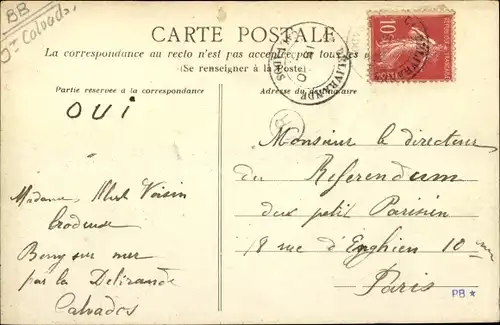 BB
Calvados
CARTE POSTALE
La correspondance au recto n'est pas acceptée par tous les
(Se renseigner à la Poste)
Partie réservée à la correspondance
Adresse du destinataire
OUI
10c
DELIVRANDE
B
Monsieur le directeur
du Referendum
du petit Parisien
18 rue d'Enghien 10me
Paris
Madame Voisin
Brodeuse
Bény sur mer
par la Delivrande
Calvados
PB *